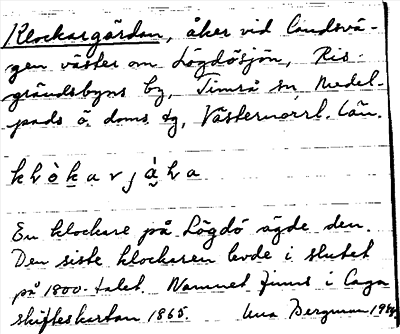 Klockargärdan, åker vid landsvä-
gen väster om Lögdösjön, Ris-
grändsbyns by, Timrå sn, Medel-
pads ö. doms. tg, Västernorrl. län.
En klockare på Lögdö ägde den.
Den siste klockaren levde i slutet
på 1800-talet. Namnet finns i Laga
skifteskartan 1865. Una Bergman